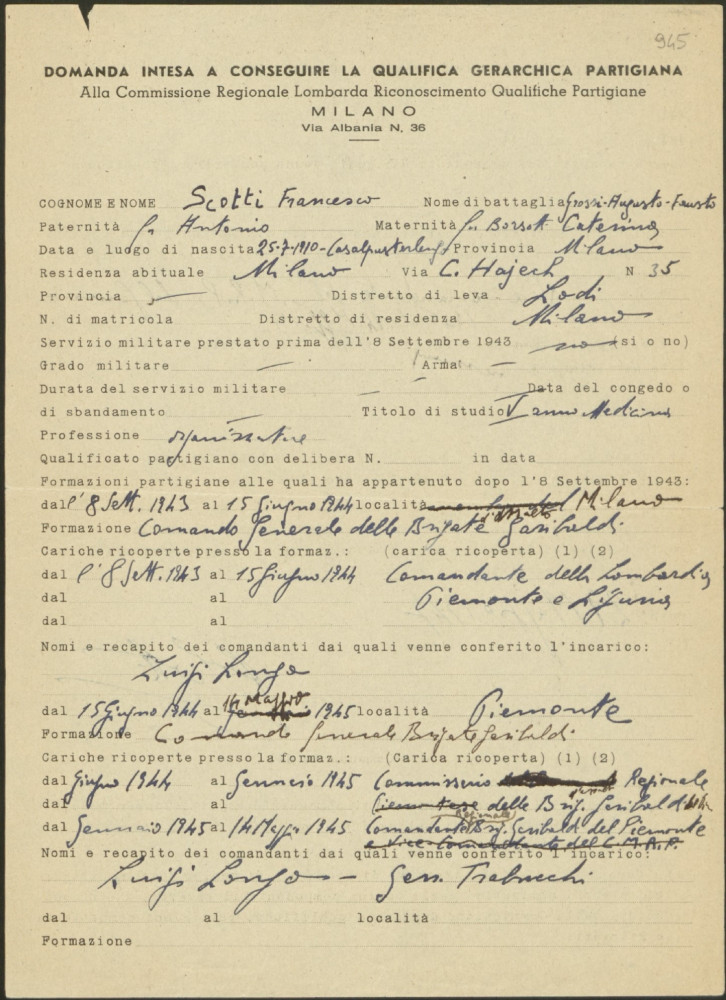 945
DOMANDA INTESA A CONSEGUIRE LA QUALIFICA GERARCHICA PARTIGIANA
Alla Commissione Regionale Lombarda Riconoscimento Qualifiche Partigiane
MILANO
Via Albania N. 36
COGNOME E NOME Scotti Francesco Nome di battaglia Grossi-Augusto-Fausto
Paternità fu Antonio Maternità fu Bersott Caterina
Data e luogo di nascita 25-7-1910-Casalpusterlengo Provincia Milano
Residenza abituale Milano Via C. Hajech N 35
Provincia Distretto di leva Lodi
N. di matricola Distretto di residenza Milano
Servizio militare prestato prima dell'8 Settembre 1943 no (si o no)
Grado militare — Arma —
Durata del servizio militare — — Data del congedo o
di sbandamento — Titolo di studio V anno Medicina
Professione organizzatore
Qualificato partigiano con delibera N. in data
Formazioni partigiane alle quali ha appartenuto dopo l'8 Settembre 1943:
dal l'8 Sett. 1943 al 15 Giugno 1944 località Milano
Formazione Comando Generale delle Brigate d'assalto Garibaldi
Cariche ricoperte presso la formaz.: (carica ricoperta) (1) (2)
dal l'8 Sett. 1943 al 15 Giugno 1944 Comandante della Lombardia
dal al Piemonte e Liguria
dal al
Nomi e recapito dei comandanti dai quali venne conferito l'incarico:
Luigi Longo
dal 15 Giugno 1944 al 14 Maggio 1945 località Piemonte
Formazione Comando Generale Brigate Garibaldi
Cariche ricoperte presso la formaz.: (Carica ricoperta) (1) (2)
dal Giugno 1944 al Gennaio 1945 Commissario Regionale
dal al delle Brig. Garibaldi
dal Gennaio 1945 al 14 Maggio 1945 Comandante Regionale Brig. Garibaldi del Piemonte
e Vice-Comandante del C.M.R.P.
Nomi e recapito dei comandanti dai quali venne conferito l'incarico:
Luigi Longo — Gen. Trabucchi
dal al località
Formazione